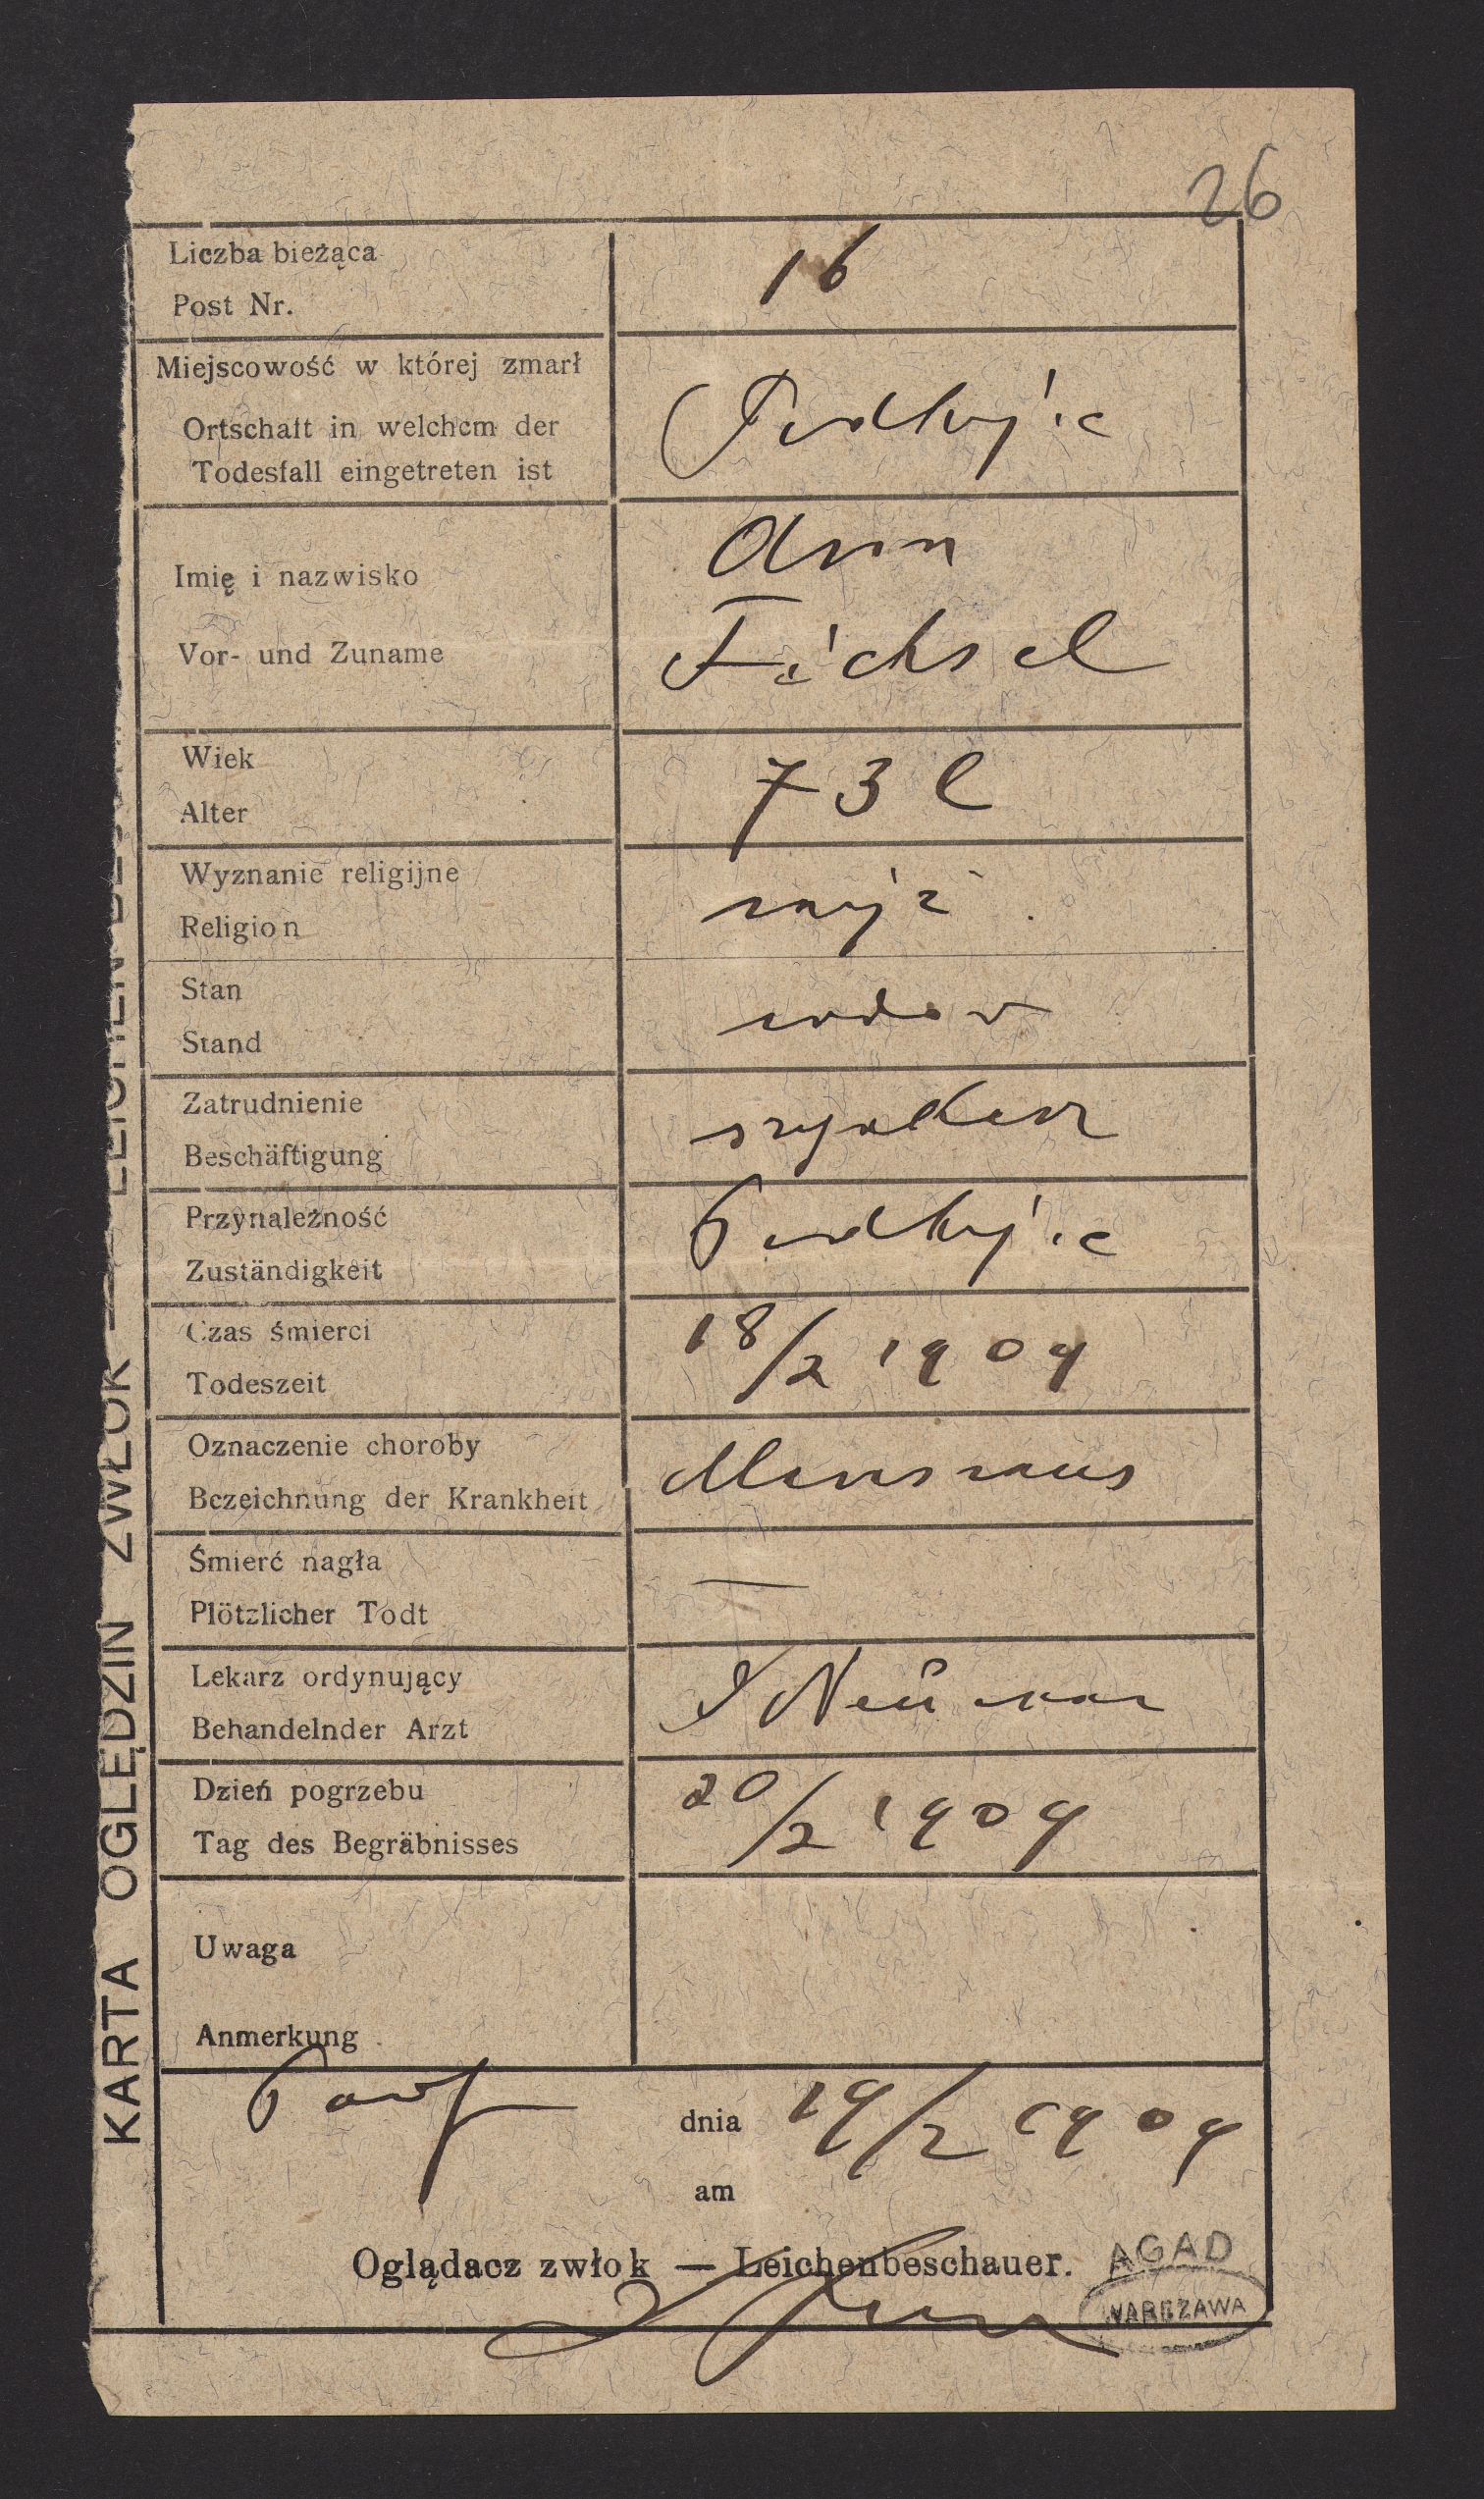 26
Liczba bieżąca
Post Nr.
16
Miejscowość w której zmarł
Ortschaft in welchem der
Todesfall eingetreten ist
Podhajce
Imię i nazwisko
Vor- und Zuname
Fichsel
Wiek
Alter
73 l
Wyznanie religijne
Religion
mojż
Stan
Stand
wdow
Zatrudnienie
Beschäftigung
szynkarz
Przynależność
Zuständigkeit
Podhajce
Czas śmierci
Todeszeit
18/2 1909
Oznaczenie choroby
Bezeichnung der Krankheit
Marasmus
Śmierć nagła
Plötzlicher Todt
—
Lekarz ordynujący
Behandelnder Arzt
Neüman
Dzień pogrzebu
Tag des Begräbnisses
20/2 1909
Uwaga
Anmerkung
dnia 19/2 1909
am
Oglądacz zwłok — Leichenbeschauer.
AGAD
WARSZAWA
KARTA OGLĘDZIN ZWŁOK —